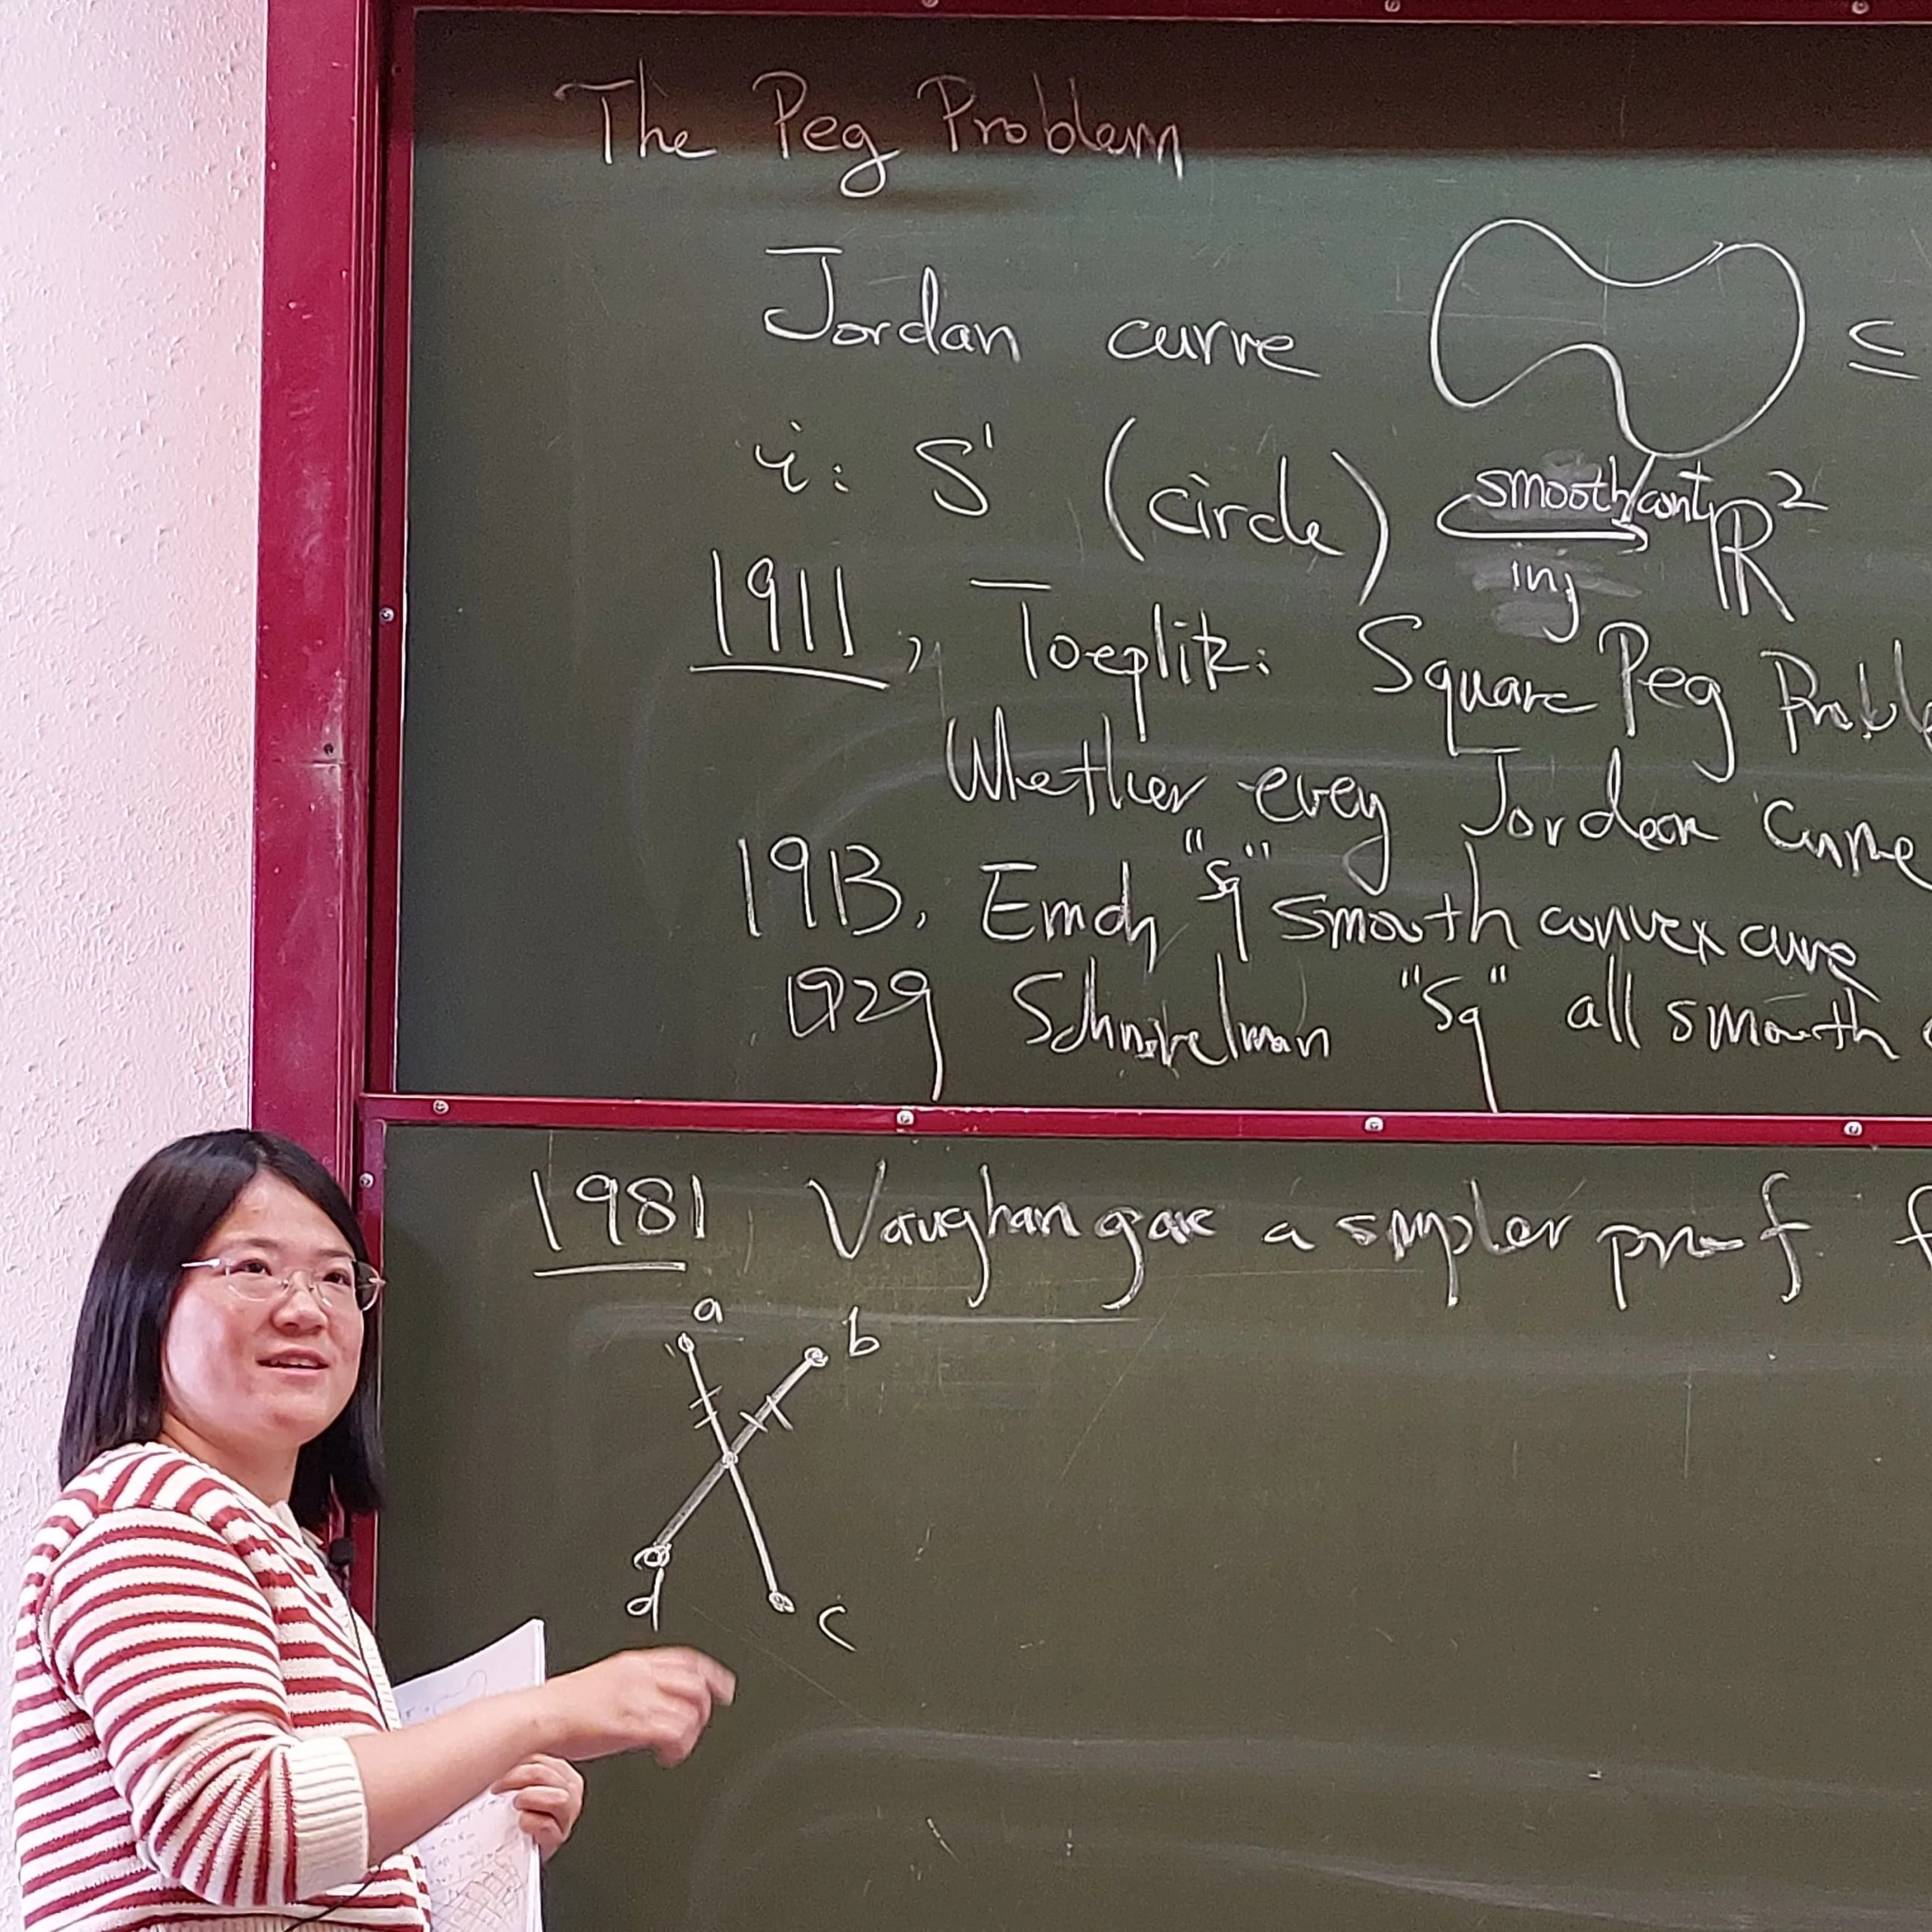 The Peg Problem
Jordan curve ⊆
i: S¹ (circle) smooth/cont inj ℝ²
1911, Toeplitz: Square Peg Probl
Whether every Jordan curve
1913. Emch "sq" smooth convex curve
1929 Schnirelman "Sq" all smooth
1981 Vaughan gave a simpler proof f
a
b
d
c